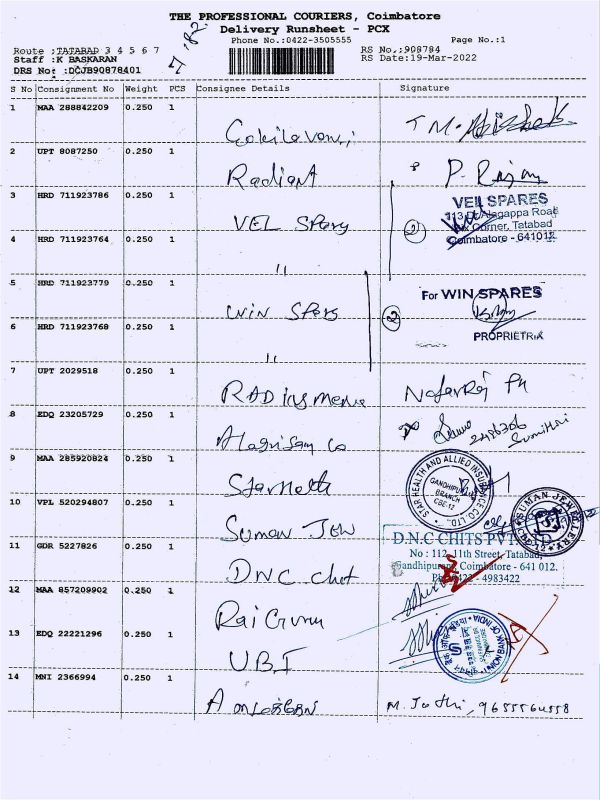 THE PROFESSIONAL COURIERS, Coimbatore
Delivery Runsheet - PCX
Phone No.:0422-3505555 Page No.:1
Route :TATABAD 3 4 5 6 7 RS No.:908784
Staff :K BASKARAN RS Date:19-Mar-2022
DRS No: :DCJB90878401
S No Consignment No Weight PCS Consignee Details Signature
1 MAA 288842209 0.250 1
2 UPT 8087250 0.250 1
Radiant
3 HRD 711923786 0.250 1
VEL SPares
VEL SPARES
113 Dr.Alagappa Road
Corner, Tatabad
Coimbatore - 641012.
2
4 HRD 711923764 0.250 1
"
5 HRD 711923779 0.250 1
WIN SPares
For WIN SPARES
2
PROPRIETRIX
6 HRD 711923768 0.250 1
"
7 UPT 2029518 0.250 1
8 EDQ 23205729 0.250 1
2486366
9 MAA 285920824 0.250 1
STAR HEALTH AND ALLIED INSURANCE CO.LTD.
GANDHIPURAM
BRANCH
CBE-12
10 VPL 520294807 0.250 1
Suman Jew
SUMAN JEWELLERS
CBE-12
11 GDR 5227826 0.250 1
DNC chit
D.N.C CHITS PVT. LTD.
No : 112, 11th Street, Tatabad,
Gandhipuram, Coimbatore - 641 012.
Ph: 0422 - 4983422
12 MAA 857209902 0.250 1
13 EDQ 22221296 0.250 1
UBI
UNION BANK OF INDIA
14 MNI 2366994 0.250 1
M. Jothi, 9655564558